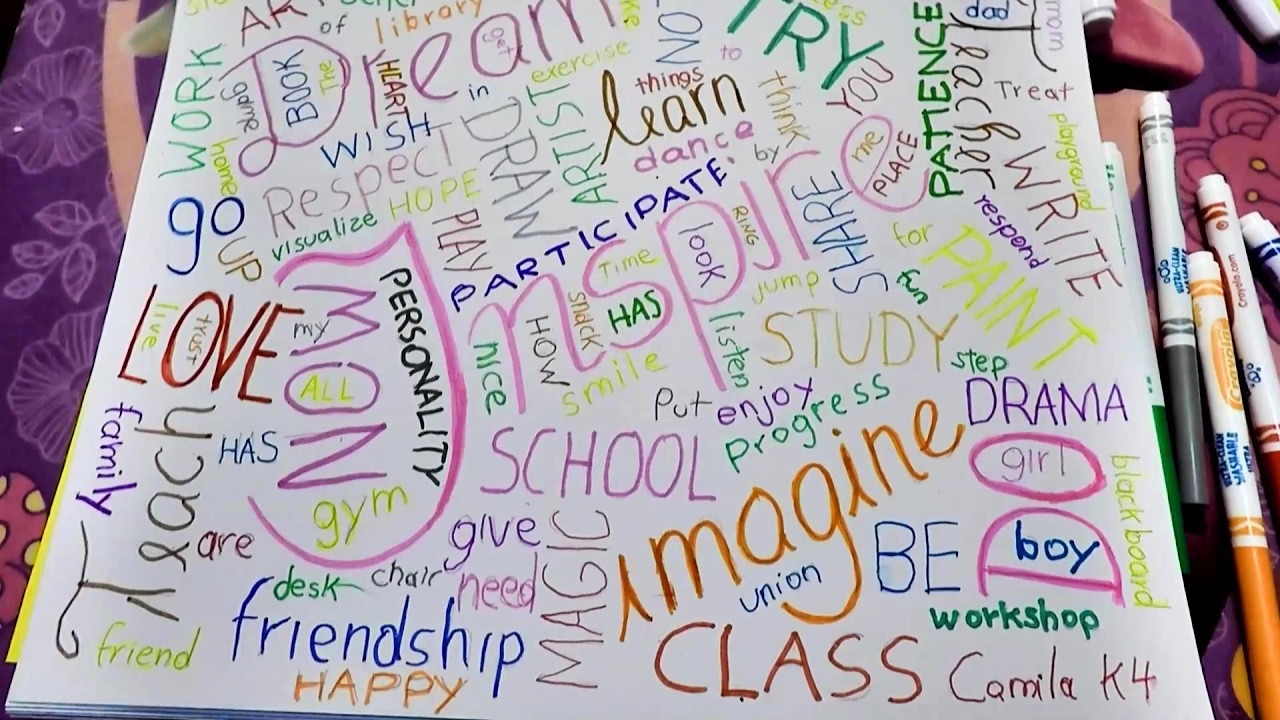 of
library
ess
dad
mom
WORK
game
BOOK
The
HEART
Dream
get
exercise
NOW
to
TRY
YOU
PATIENCE
Teacher
Treat
in
WISH
DRAW
ARTIST
things
learn
think
dance
by
me
PLACE
WRITE
playground
home
go
UP
Respect
visualize
HOPE
PLAY
PARTICIPATE
Inspire
look
RING
SHARE
for
fun
respond
PAINT
LOVE
live
trust
my
NOW
ALL
PERSONALITY
nice
HOW
snack
Time
HAS
smile
jump
listen
STUDY
step
family
Teach
HAS
gym
SCHOOL
Put
enjoy
progress
imagine
DRAMA
girl
blackboard
are
give
desk
chair
need
MAGIC
union
BE
boy
workshop
friend
friendship
HAPPY
CLASS
Camila K4
Crayola
Crayola.com
ULTRA-CLEAN
WASHABLE